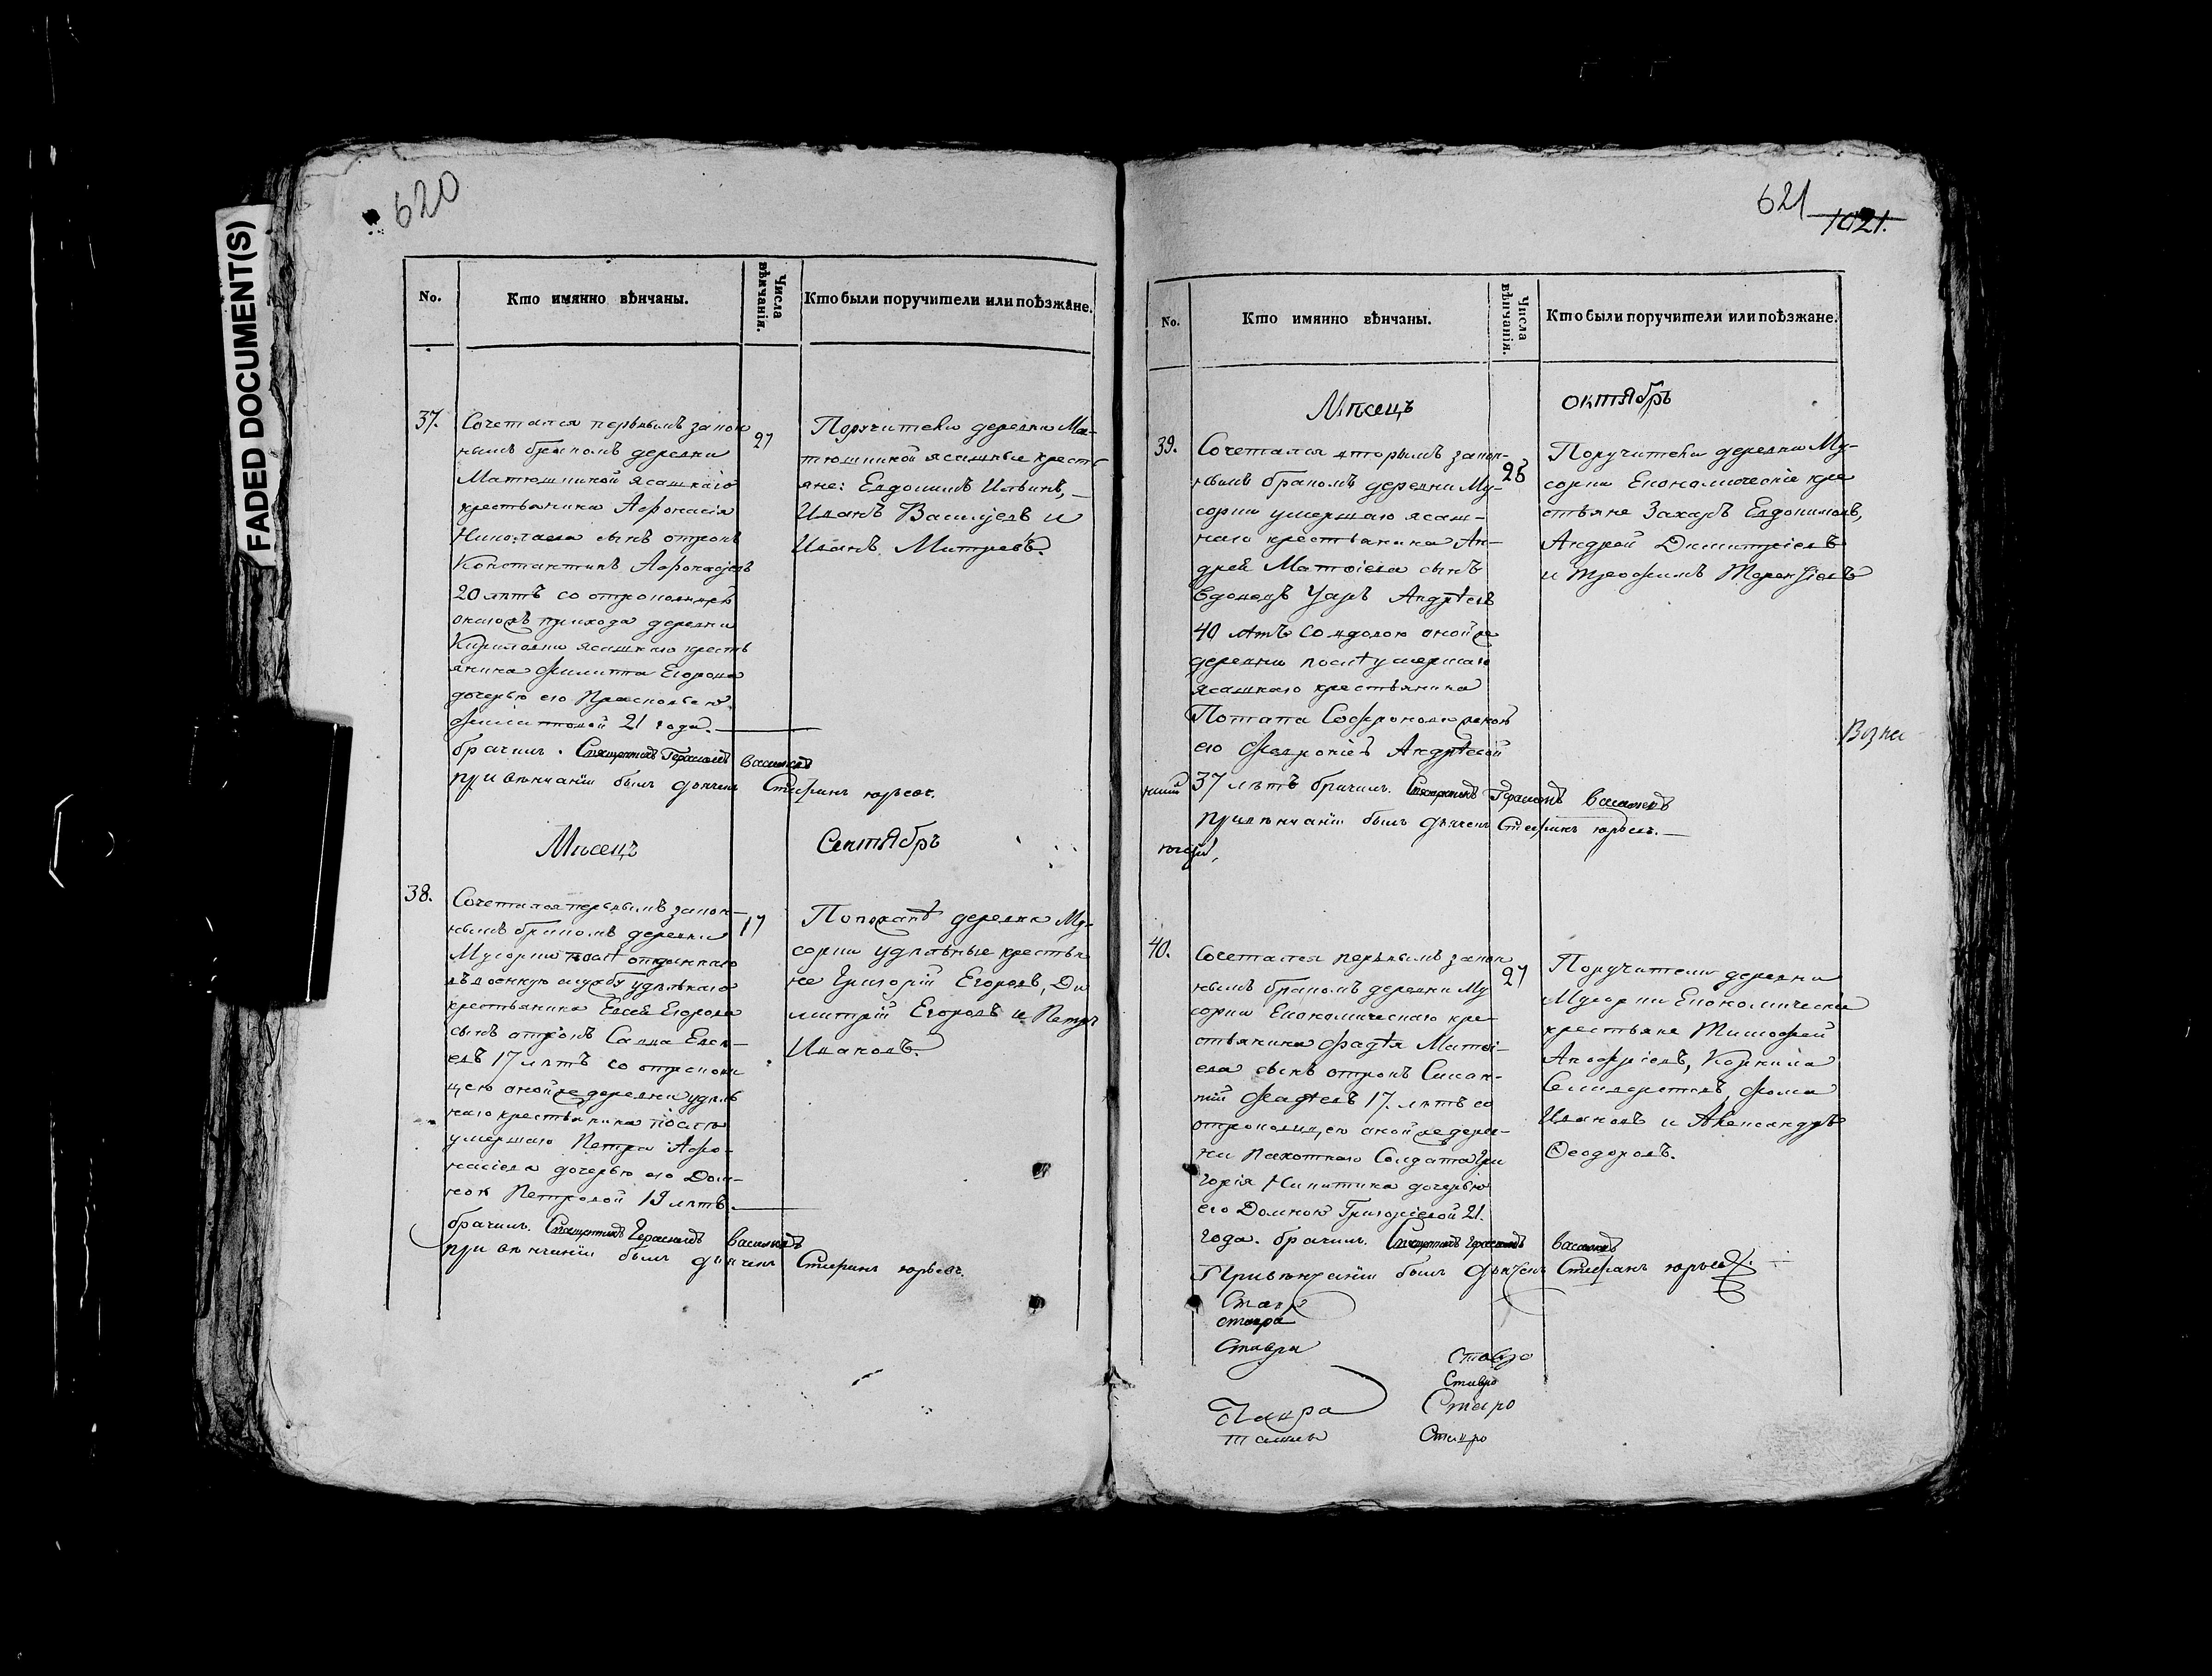 FADED DOCUMENT(S)
620
No.
Кто имянно вѣнчаны.
Числа вѣнчанія.
Кто были поручители или поѣзжане.
37.
Сочетался первымъ закон
нымъ бракомъ деревни
Матюшкиной ясашнаго
крестьянина Афонасія
Николаева сынъ отрокъ
Константинъ Афонасьевъ
20 лѣтъ со отроковицею
прихода деревни
ясашнаго кресть
янина Филиппа Егорова
дочерью его Прасковьею
Филипповой 21 года.
брачил. Священникъ Герасимъ Васильевъ
при вѣнчаніи былъ дьячекъ Стефанъ юрьевъ.
27
Поручители деревни Ма-
тюшкиной ясашные кресть
яне: Евдокимъ Ильинъ,
Иванъ Васильевъ и
Иванъ Митревъ.
Мѣсецъ Сентябрь
38.
Сочетался первымъ закон-
нымъ бракомъ деревни
Мусорки послѣ отданнаго
въ военную службу удѣльнаго
крестьянина Евсея Егорова
сынъ отрокъ Савва Евсе-
евъ 17 лѣтъ со отрокови
цею оной же деревни удѣль
наго крестьянина послѣ
умершаго Петра Афо-
насіева дочерью его Дом-
ною Петровой 19 лѣтъ.
брачил. Священникъ Герасимъ Васильевъ
при вѣнчаніи былъ дьячекъ Стефанъ юрьевъ.
17
деревни Му-
сорки удѣльные крестья
не Григорій Егоровъ, Ди
митрій Егоровъ и Петръ
Ивановъ.
621
1021.
No.
Кто имянно вѣнчаны.
Числа вѣнчанія.
Кто были поручители или поѣзжане.
Мѣсецъ октябрь
39.
Сочетался вторымъ закон-
нымъ бракомъ деревни Му-
сорки умершаго ясаш-
наго крестьянина Ан-
дрея Матвіева сынъ
вдовецъ Уаръ Андрѣевъ
40 лѣтъ со вдовою оной же
деревни послѣ умершаго
ясашнаго крестьянина
Потапа Софронова женою
его Февроніею Андрѣевой
37 лѣтъ брачил. Священникъ Герасимъ Васильевъ
при вѣнчаніи былъ дьячекъ Стефанъ юрьевъ.
26
Поручители деревни Му-
сорки Економическіе кре
стьяне Захаръ Евдокимовъ,
Андрей Димитріевъ
и Терентіевъ
40.
Сочетался первымъ закон
нымъ бракомъ деревни Му
сорки Економическаго кре-
стьянина Фадѣя Матві-
ева сынъ отрокъ
Фадѣевъ 17. лѣтъ со
отроковицею оной же дерев-
ни пахотнаго Солдата Гри
горія Никитина дочерью
его Домною Григоріевой 21.
года. брачил. Священникъ Герасимъ Васильевъ
При вѣнчаніи былъ дьячекъ Стефанъ юрьевъ.
27
Поручители деревни
Мусорки Економическіе
крестьяне Тимофей
Корнила
Селиверстовъ, Фома
Ивановъ и Александръ
Ѳеодоровъ.